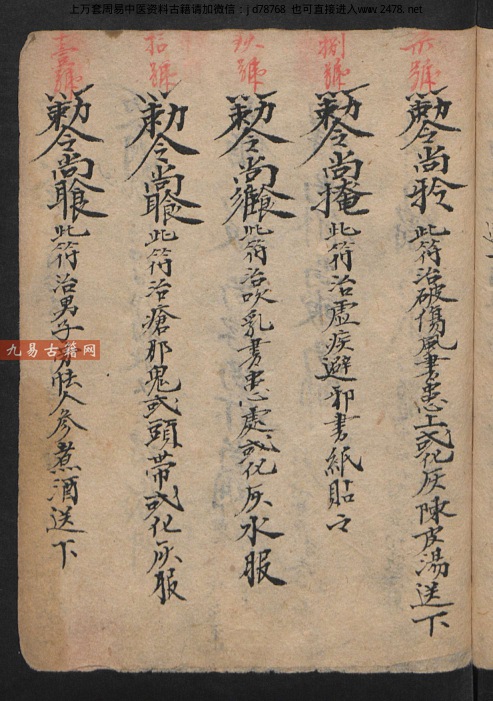 上万套周易中医资料古籍请加微信：jd78768 也可直接进入www.2478.net
號
勅令尚 此符治破傷風書患上或化灰陳皮湯送下
捌號
勅令尚掩 此符治虛疾避邪書紙貼之
玖號
勅令尚 此符治吹乳書患處或化灰水服
拾號
勅令尚 此符治瘡邪鬼或頭帶或化灰服
壹號
勅令尚 此符治男子 人參煮酒送下
九易古籍网